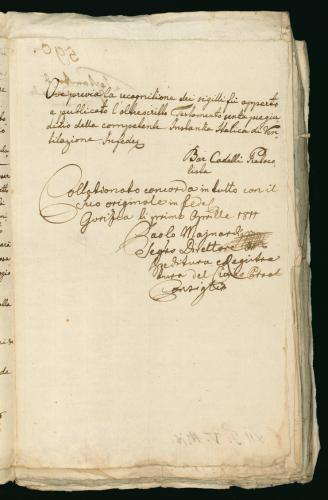 590.
Ove previa la recognitione dei sigilli fù apperto
e publicato l'oltrescritto Testamento senza pregiu
dicio della competente Instanza Italica di Ven
tilazione. In fede
Bar Codelli Protoco
lista
Collationato concorda in tutto con il
suo originale in fede
Gorizia li primo Aprile 1811
Paolo Mainardi
Segrio Direttore
peditura e Registra
tura del
Consiglio